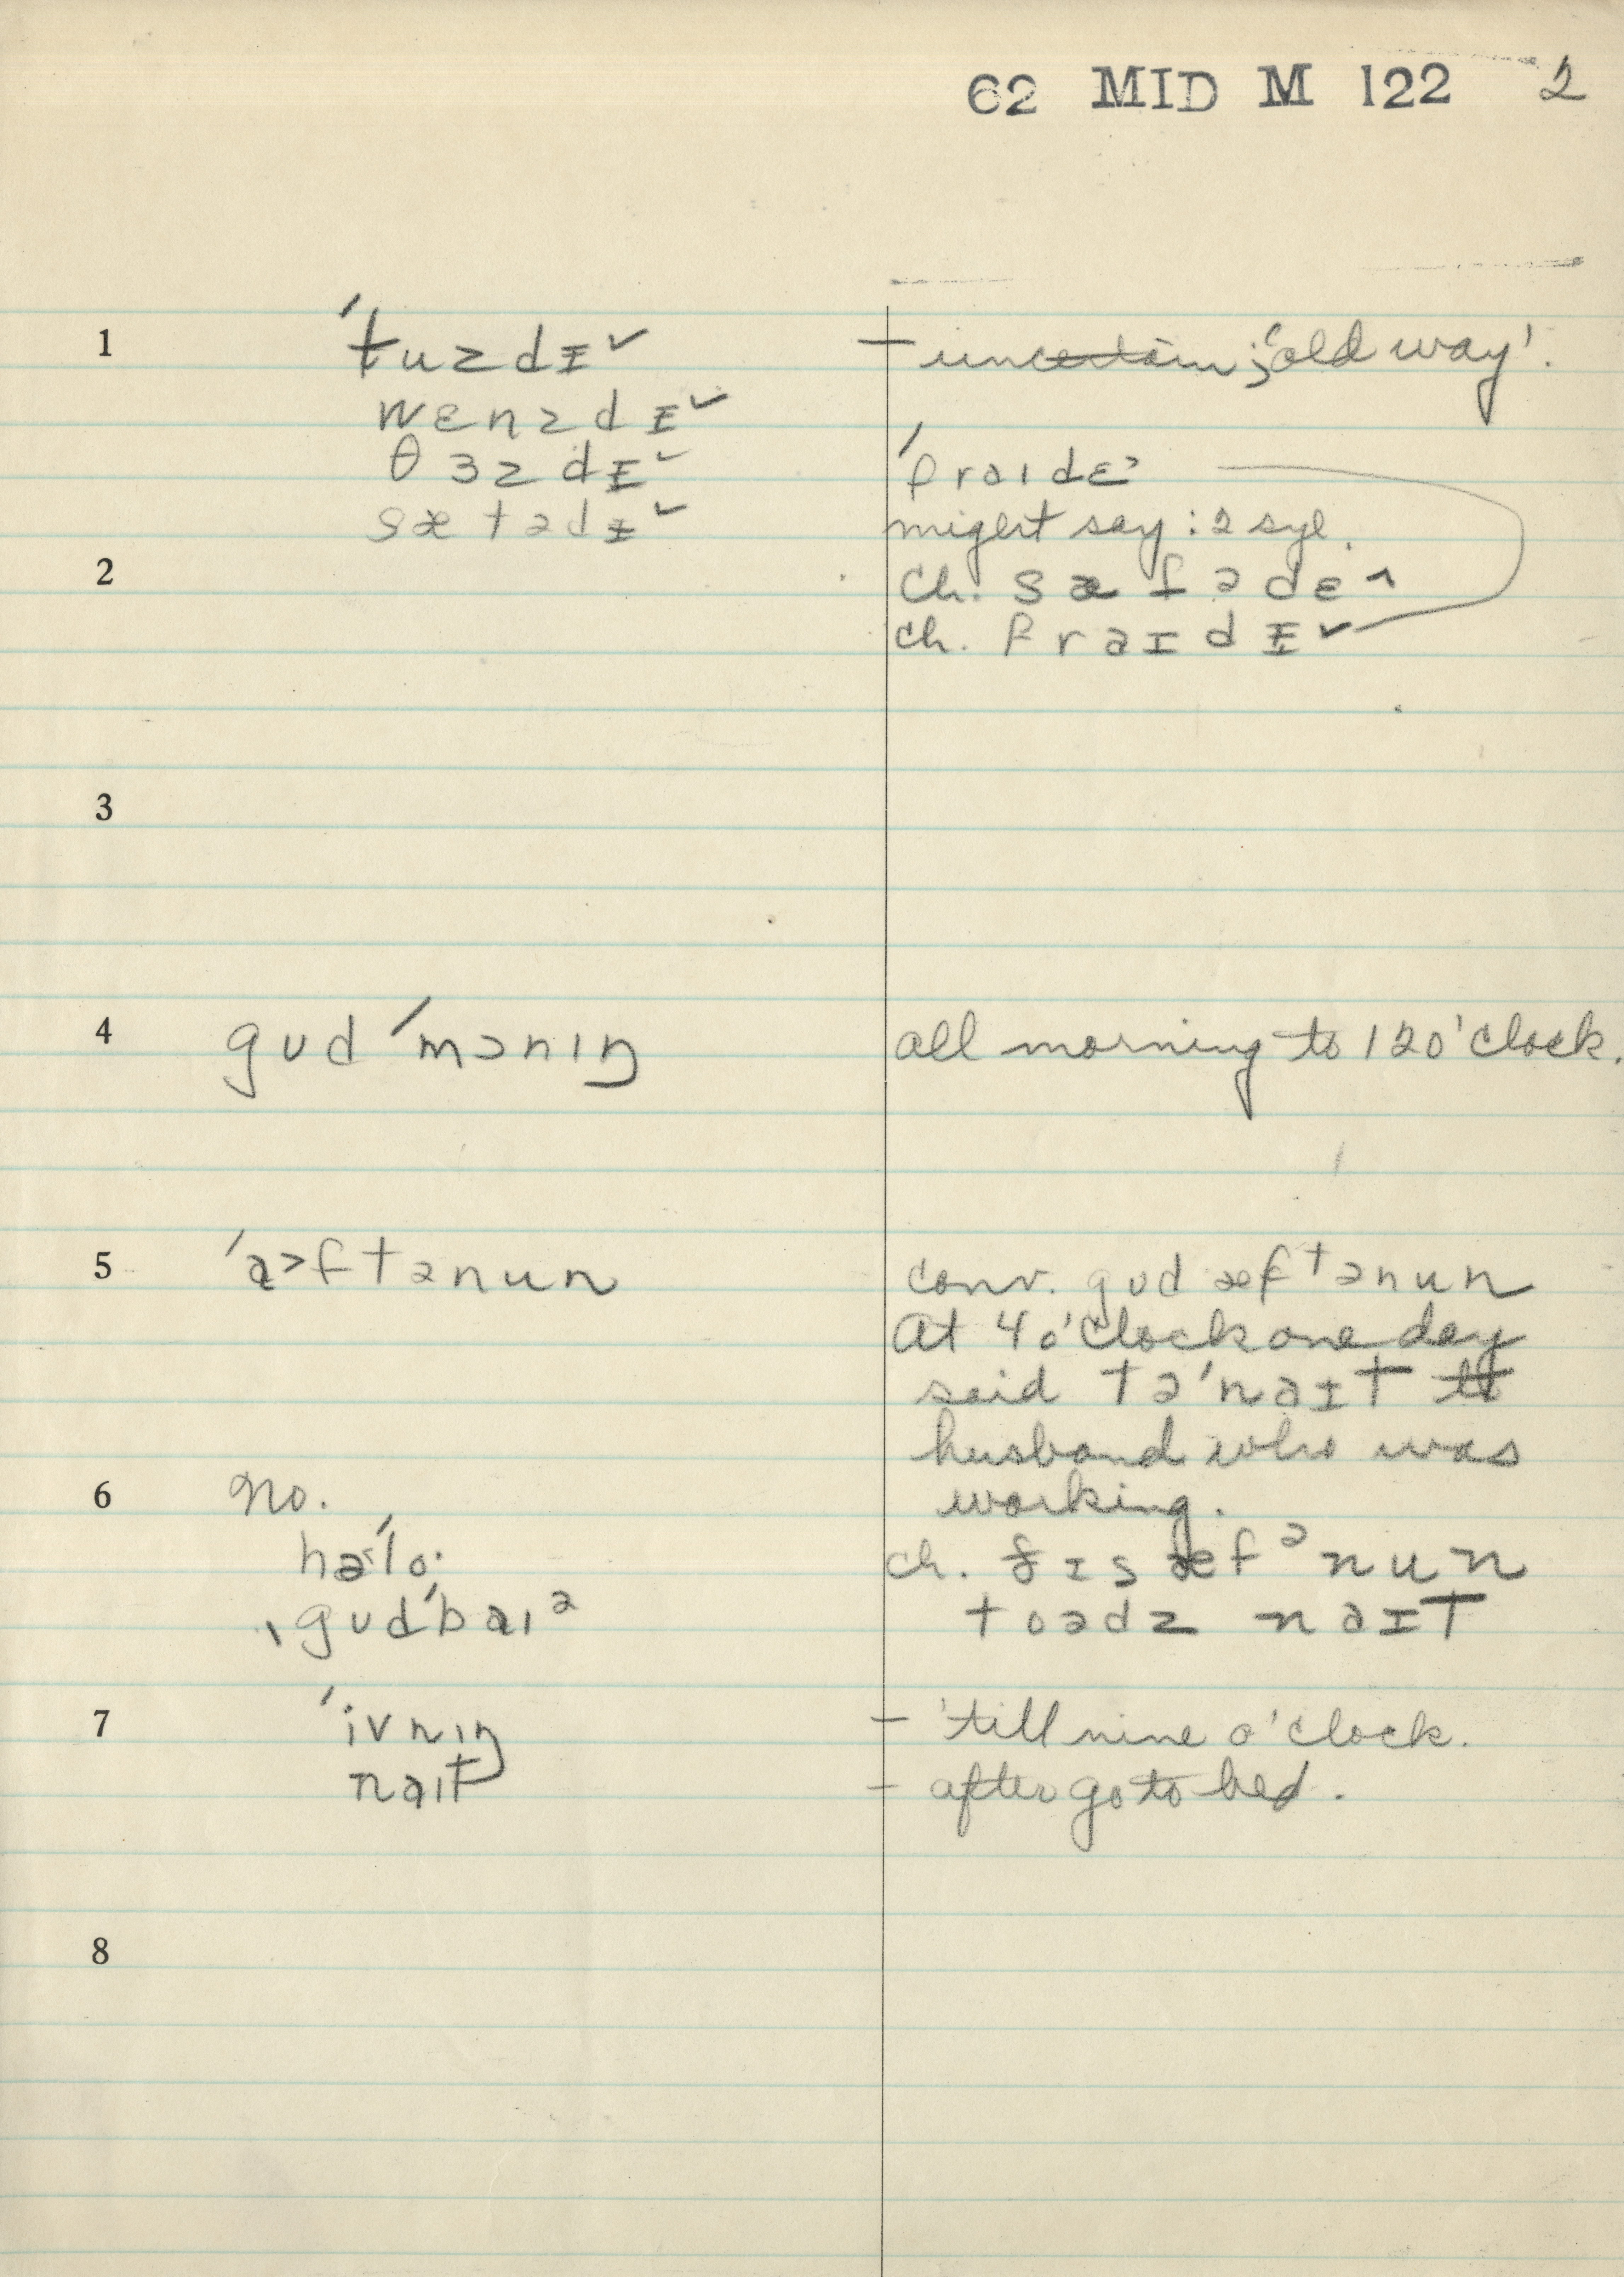 62 MID M 122 2
1 ˈtuzdɪ˅ – uncertain; 'old way'.
wɛnzdɪ˅
θɜzdɪ˅ ˈfraɪdɛ˃
sætədɪ˅ might say: 2 syl.
2 Ch. sæfədɛ˄
ch. fraɪdɪ˅
3
4 gʊd ˈmɔnɪŋ all morning to 12 o'clock.
5 ˈa˃ftənun conv. gʊd æftənun
At 4 o'clock one day
said təˈnaɪt to
husband who was
6 no. working.
ha˂ˈlo· ch. ðɪs æfənun
ˌgʊdˈbaɪə toədz naɪt
7 ˈivnɪŋ – 'till nine o'clock.
naɪt – after go to bed.
8